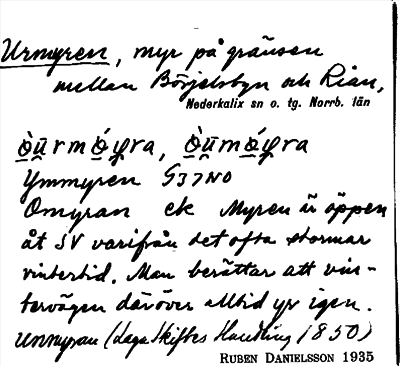 Urmyren, myr på gränsen
mellan Börjelsbyn och Rian,
Nederkalix sn o. tg. Norrb. län
Ymmyren G37NO
Omyran ek Myren är öppen
åt SV varifrån det ofta stormar
vintertid. Man berättar att vin-
tervägen däröver alltid yr igen.
Unnmyran (Laga Skiftes Handling 1850)
RUBEN DANIELSSON 1935